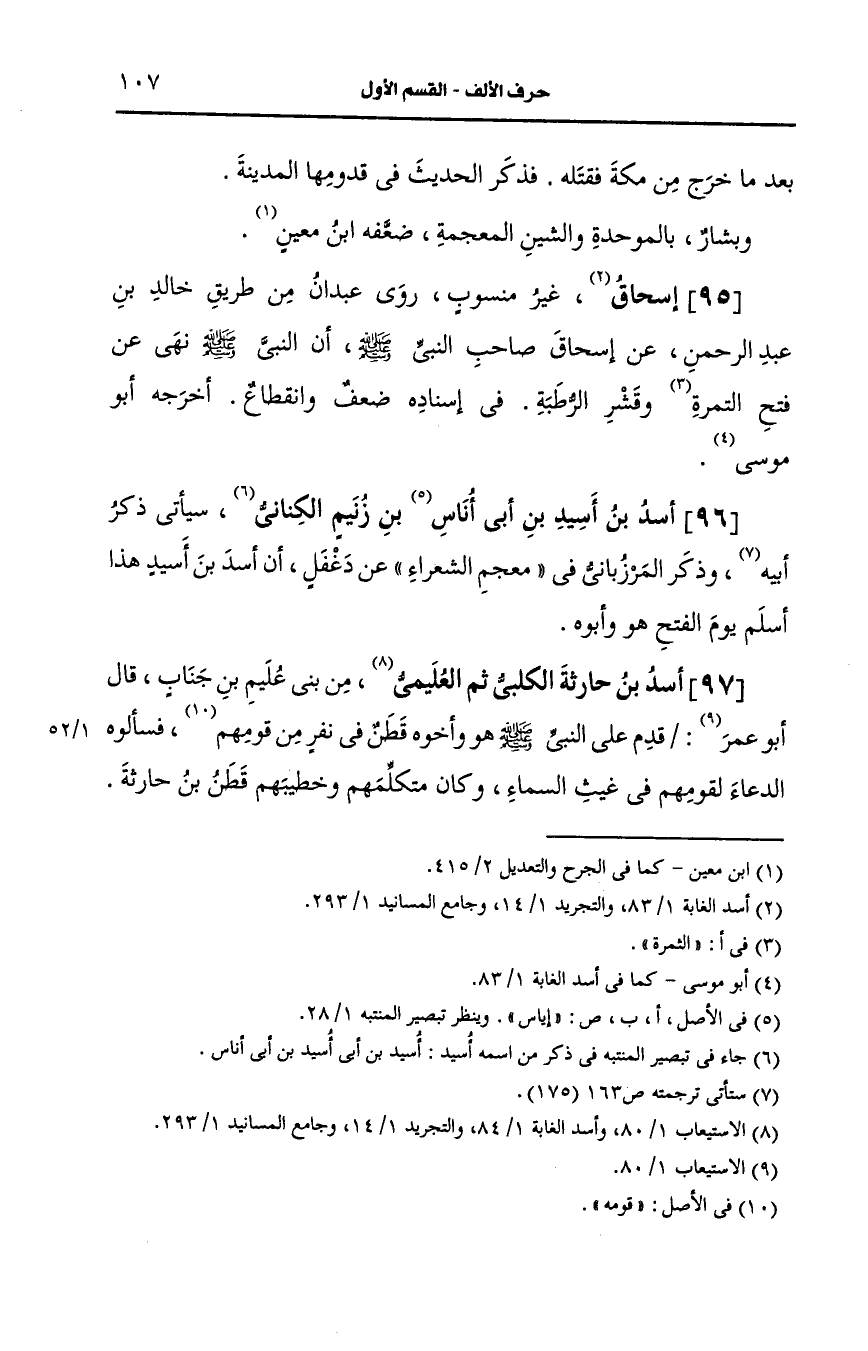 حرف الألف - القسم الأول ١٠٧
بعد ما خرَج مِن مكةَ فقتَله . فذكَر الحديثَ فى قدومِها المدينةَ .
وبشارٌ ، بالموحدةِ والشينِ المعجمةِ ، ضعَّفه ابنُ معينٍ(١) .
[٩٥] إسحاقُ(٢) ، غيرُ منسوبٍ ، روَى عبدانُ مِن طريقِ خالدِ بنِ
عبدِ الرحمنِ ، عن إسحاقَ صاحبِ النبىِّ ﷺ ، أن النبىَّ ﷺ نهَى عن
فتحِ التمرةِ(٣) وقَشْرِ الرُّطَبَةِ . فى إسنادِه ضعفٌ وانقطاعٌ . أخرَجه أبو
موسى(٤) .
[٩٦] أسدُ بنُ أَسِيدِ بنِ أبى أُنَاسِ(٥) بنِ زُنَيمٍ الكِنانىُّ(٦) ، سيأتى ذكرُ
أبيه(٧) ، وذكَر المَرْزُبانىُّ فى « معجمِ الشعراءِ » عن دَغْفَلٍ ، أن أسدَ بنَ أَسيدٍ هذا
أسلَم يومَ الفتحِ هو وأبوه .
[٩٧] أسدُ بنُ حارثةَ الكلبىُّ ثم العُلَيمىُّ(٨) ، مِن بنى عُلَيمِ بنِ جَنَابٍ ، قال
أبو عمرَ(٩) : / قدِم على النبىِّ ﷺ هو وأخوه قَطَنٌ فى نفرٍ مِن قومِهم(١٠) ، فسألوه ٥٢/١
الدعاءَ لقومِهم فى غيثِ السماءِ ، وكان متكلِّمَهم وخطيبَهم قَطَنُ بنُ حارثةَ .
(١) ابن معين - كما فى الجرح والتعديل ٢/ ٤١٥.
(٢) أسد الغابة ١/ ٨٣، والتجريد ١/ ١٤، وجامع المسانيد ١/ ٢٩٣.
(٣) فى أ : « الثمرة » .
(٤) أبو موسى - كما فى أسد الغابة ١/ ٨٣.
(٥) فى الأصل ، أ ، ب ، ص : « إياس » . وينظر تبصير المنتبه ١/ ٢٨.
(٦) جاء فى تبصير المنتبه فى ذكر من اسمه أُسيد : أُسيد بن أبى أُسيد بن أبى أناس .
(٧) ستأتى ترجمته ص١٦٣ (١٧٥) .
(٨) الاستيعاب ١/ ٨٠، وأسد الغابة ١/ ٨٤، والتجريد ١/ ١٤، وجامع المسانيد ١/ ٢٩٣.
(٩) الاستيعاب ١/ ٨٠.
(١٠) فى الأصل : « قومه » .